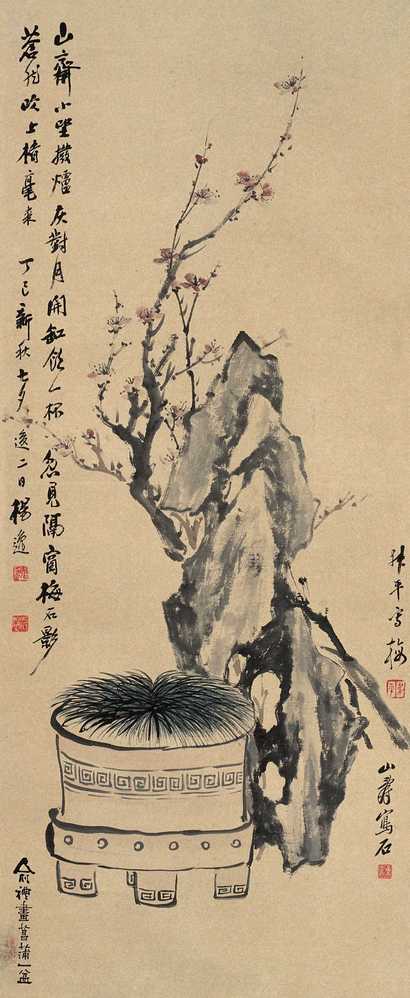 山齋小坐撥爐灰對月開缸飲一杯忽見隔窗梅石影
蒼然吹上楮毫來 丁巳新秋七夕後二日楊逸
平寫梅
山壽寫石
俞禮畫菖蒲一盆